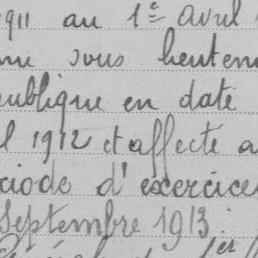 1911 au 1er Avril
sous lieuten
publique en date
1912 et affecté a
riode d'exercices
Septembre 1913.